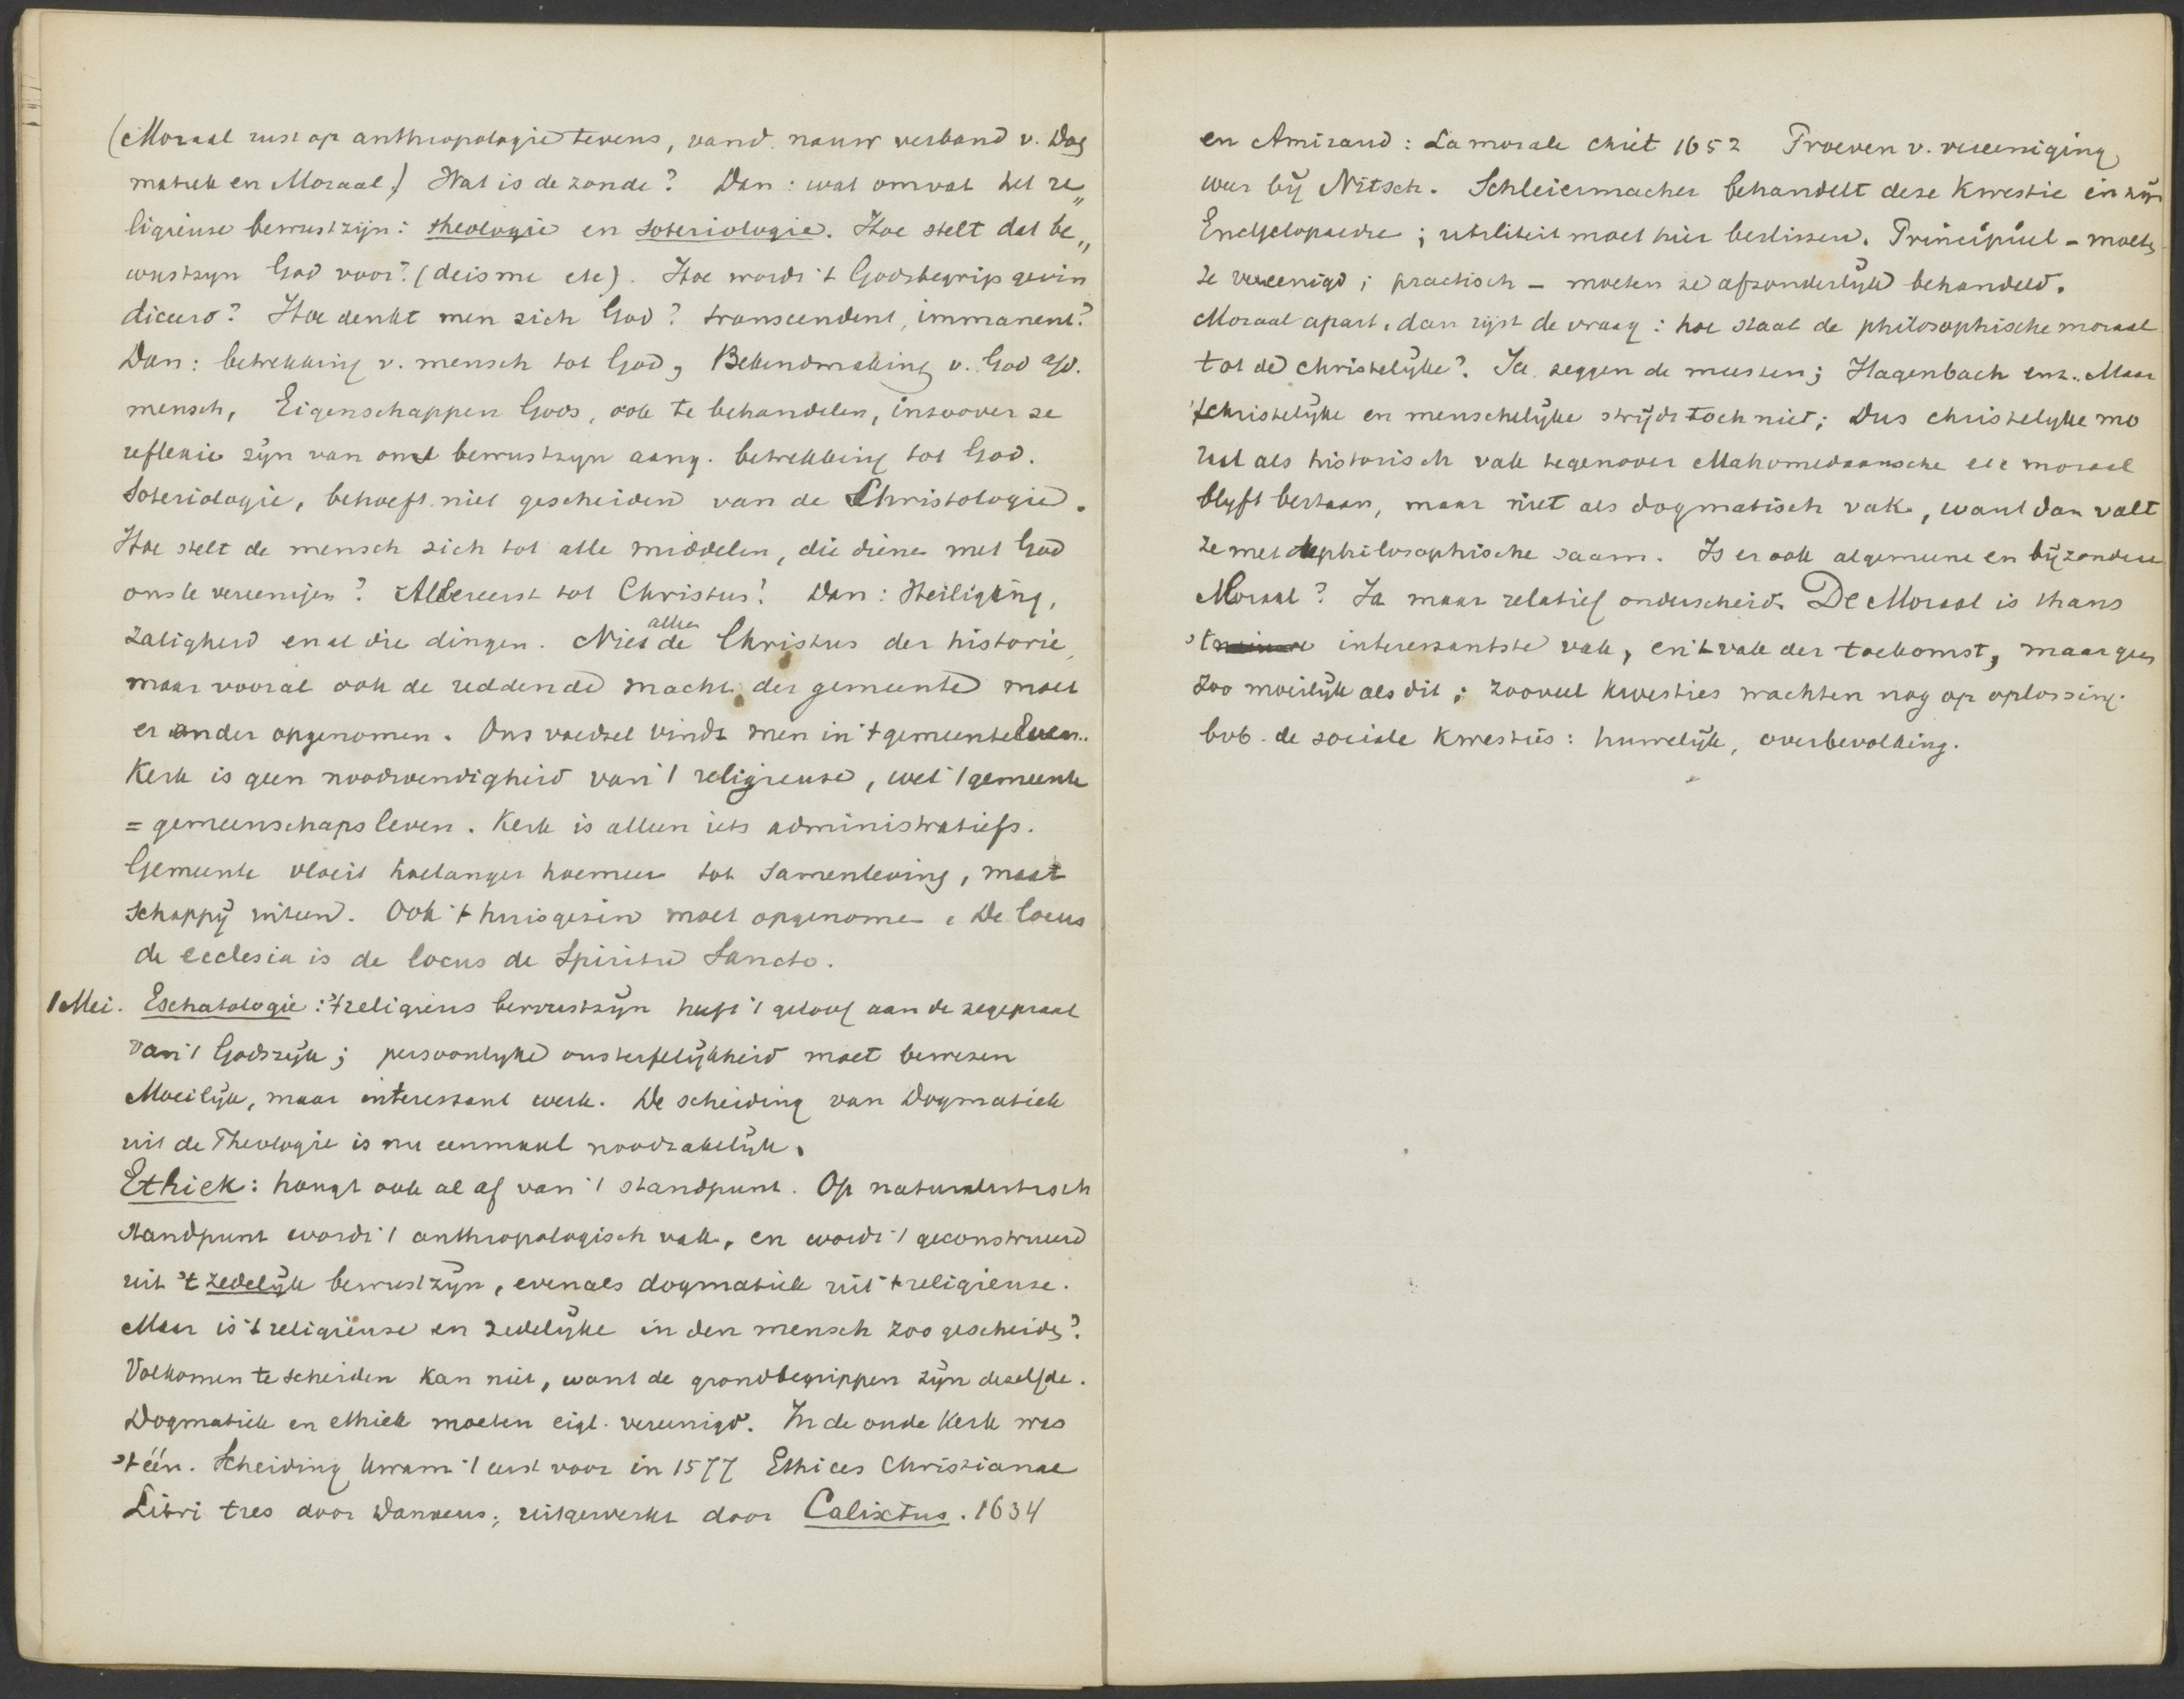 (Moraal rust op anthropologie tevens, vand. nauw verband v. Dog
matiek en Moraal.) Wat is de zonde? Dan: wat omvat het re„
ligieuse bewustzijn: theologie en soteriologie. Hoe stelt dat be„
wustzyn God voor? (deisme etc). Hoe wordt 't Godsbegrip gevin
diceerd? Hoe denkt men zich God? transcendent, immanent?
Dan: betrekking v. mensch tot God, Bekendmaking v. God a/d.
mensch, Eigenschappen Gods, ook te behandelen, inzoover ze
reflexie zijn van ons bewustzyn aang. betrekking tot God.
Soteriologie, behoeft niet gescheiden van de Christologie.
Hoe stelt de mensch zich tot alle middelen, die dienen met God
ons te vereenigen? Allereerst tot Christus! Dan: Heiliging,
zaligheid en al die dingen. Niet alleen de Christus der historie,
maar vooral ook de reddende macht der gemeente moet
er onder opgenomen. Ons voedsel vindt men in 't gemeenteleven.
Kerk is geen noodwendigheid van 't religieuse, wel 't gemeente
= gemeenschapsleven. Kerk is alleen iets administratiefs.
Gemeente vloeit hoelanger hoemeer tot samenleving, maat
schappij uiteen. Ook 't huisgezin moet opgenomen. De locus
de ecclesia is de locus de Spiritu Sancto.
1 Mei. Eschatologie: 't religieus bewustzijn heeft 't geloof aan de zegepraal
van 't Godsrijk; persoonlyke onsterfelijkheid moet bewezen
Moeilijk, maar interessant werk. De scheiding van Dogmatiek
uit de Theologie is nu eenmaal noodzakelijk.
Ethiek: hangt ook al af van 't standpunt. Op naturalistisch
standpunt wordt 't anthropologisch vak, en wordt 't geconstrueerd
uit 't zedelijk bewustzijn, evenals dogmatiek uit 't religieuse.
Maar is 't religieuse en zedelijke in den mensch zoo gescheiden?
Volkomen te scheiden kan niet, want de grondbegrippen zijn dezelfde.
Dogmatiek en ethiek moeten eigl. vereenigd. In de oude Kerk was
't één. Scheiding kwam 't eerst voor in 1577 Ethices Christianae
Libri tres door Danaeus; uitgewerkt door Calixtus. 1634
en Amiraud: La morale chrét 1652 Proeven v. vereeniging
weer bij Nitsch. Schleiermacher behandelt deze kwestie in zijn
Encyclopaedie; utiliteit moet hier beslissen. Principieel - moeten
ze vereenigd; practisch - moeten ze afzonderlijk behandeld.
Moraal apart, dan rijst de vraag: hoe staat de philosophische moraal
tot de christelijke? Ja zeggen de meesten; Hagenbach enz. Maar
't christelijke en menschelijke strijdt toch niet; Dus christelyke mo
raal als historisch vak tegenover Mahomedaansche etc moraal
blyft bestaan, maar niet als dogmatisch vak, want dan valt
ze met de philosophische saam. Is er ook algemeene en bijzondere
Moraal? Ja maar relatief onderscheid. De Moraal is thans
't interessantste vak, en 't vak der toekomst, maar geen
zoo moeilijk als dit; zooveel kwesties wachten nog op oplossing.
bvb. de sociale kwesties: huwelijk, overbevolking.